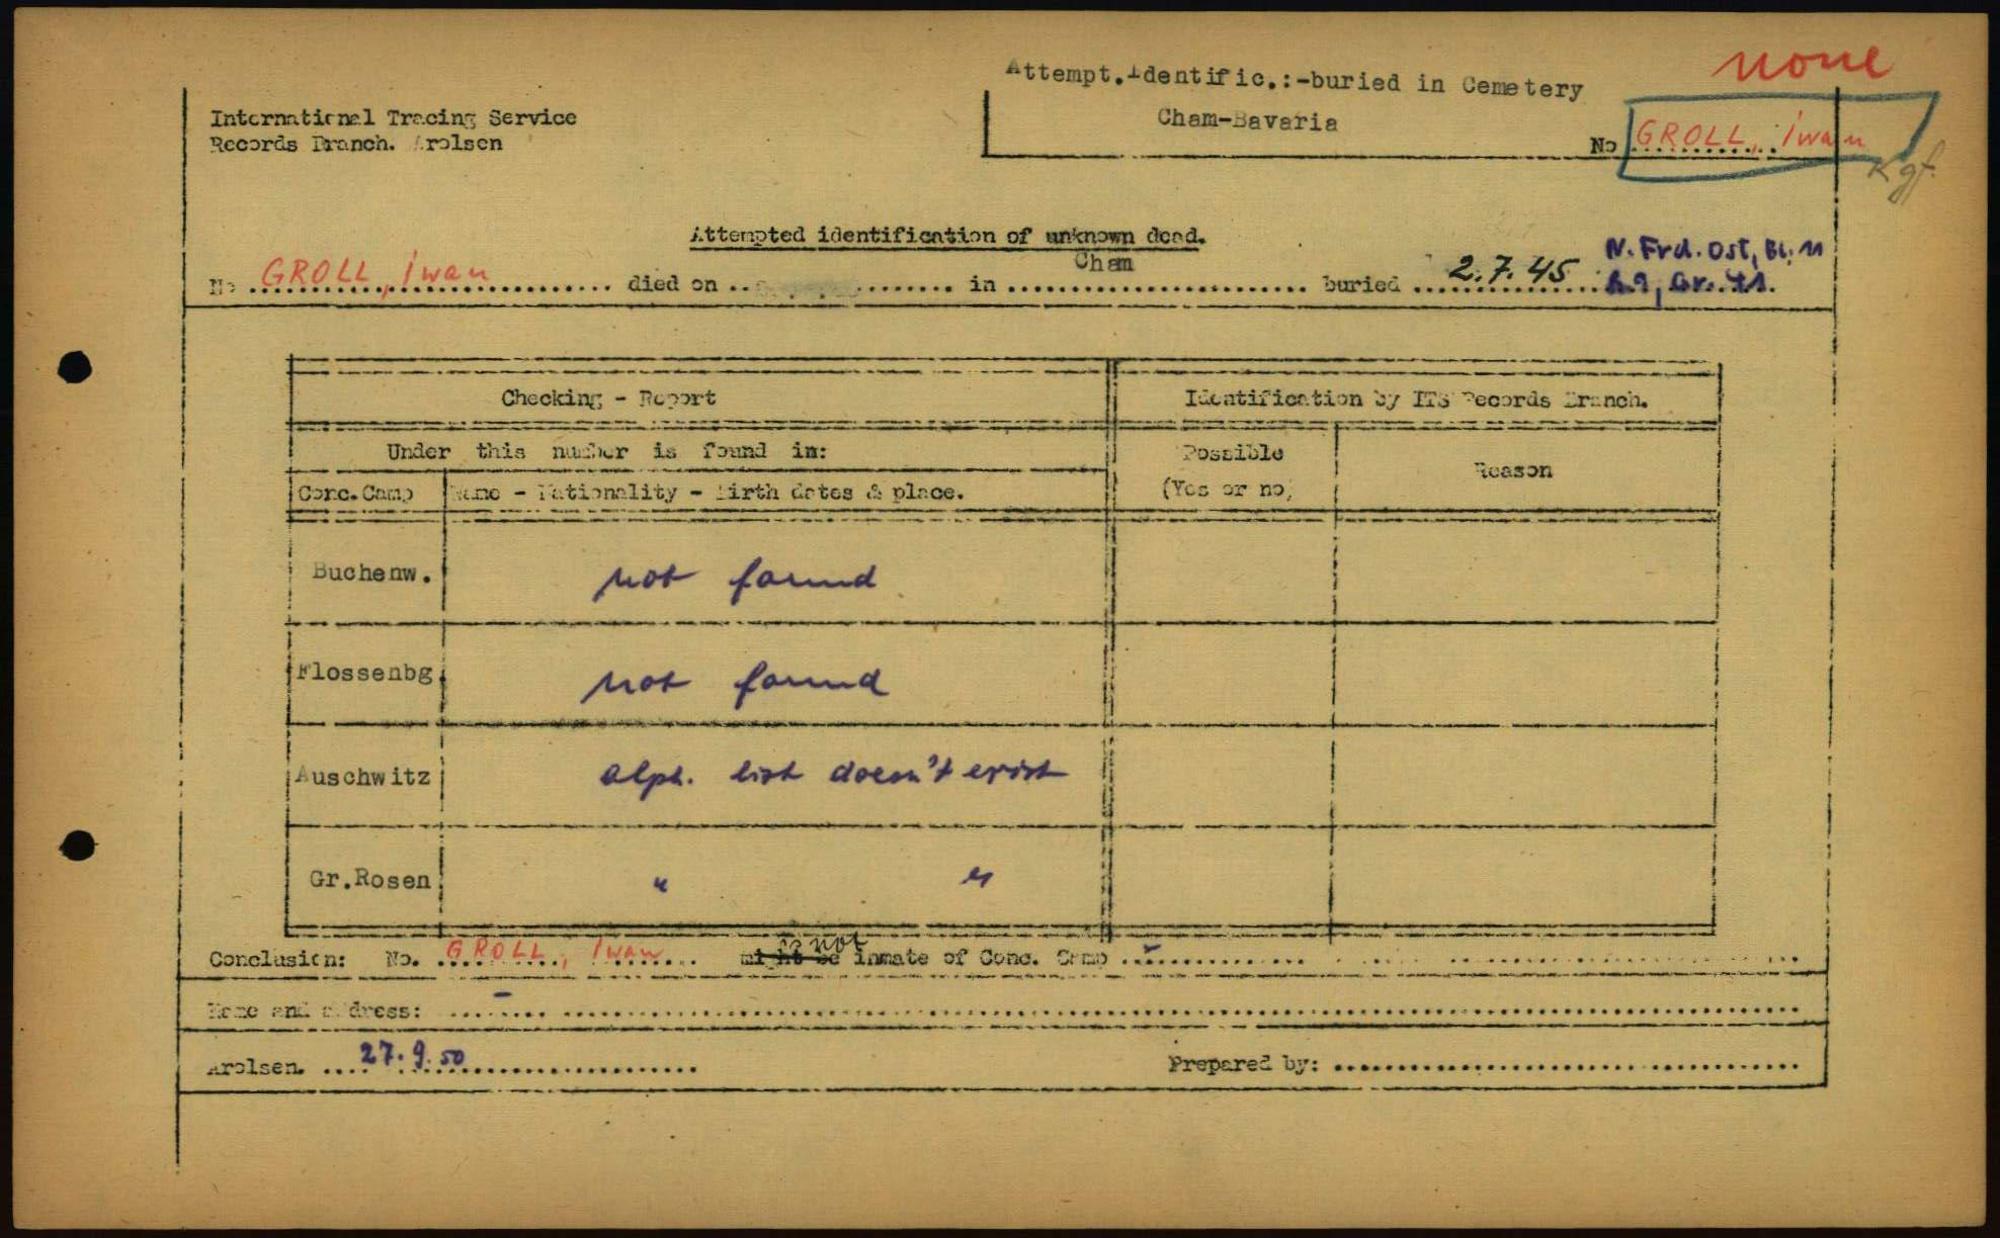 none
Attempt.Identific.:-buried in Cemetery
Cham-Bavaria
International Tracing Service
Records Branch. Arolsen
No GROLL, Iwan
Kgf.
Attempted identification of unknown dead.
N. Frd. Ost, Bl. 11
No GROLL, Iwan died on in Cham buried 2.7.45
Gr. 41.
Checking - Report
Identification by ITS Records Branch.
Under this number is found in:
Possible
(Yes or no)
Reason
Conc.Camp
Name - Nationality - Birth dates & place.
Buchenw.
not found
Flossenbg
not found
Auschwitz
alph. list doesn't exist
Gr.Rosen
" "
not
Conclusion: No. GROLL, Iwan might be inmate of Conc. Camp -
Name and address: -
Arolsen. 27.9.50
Prepared by: